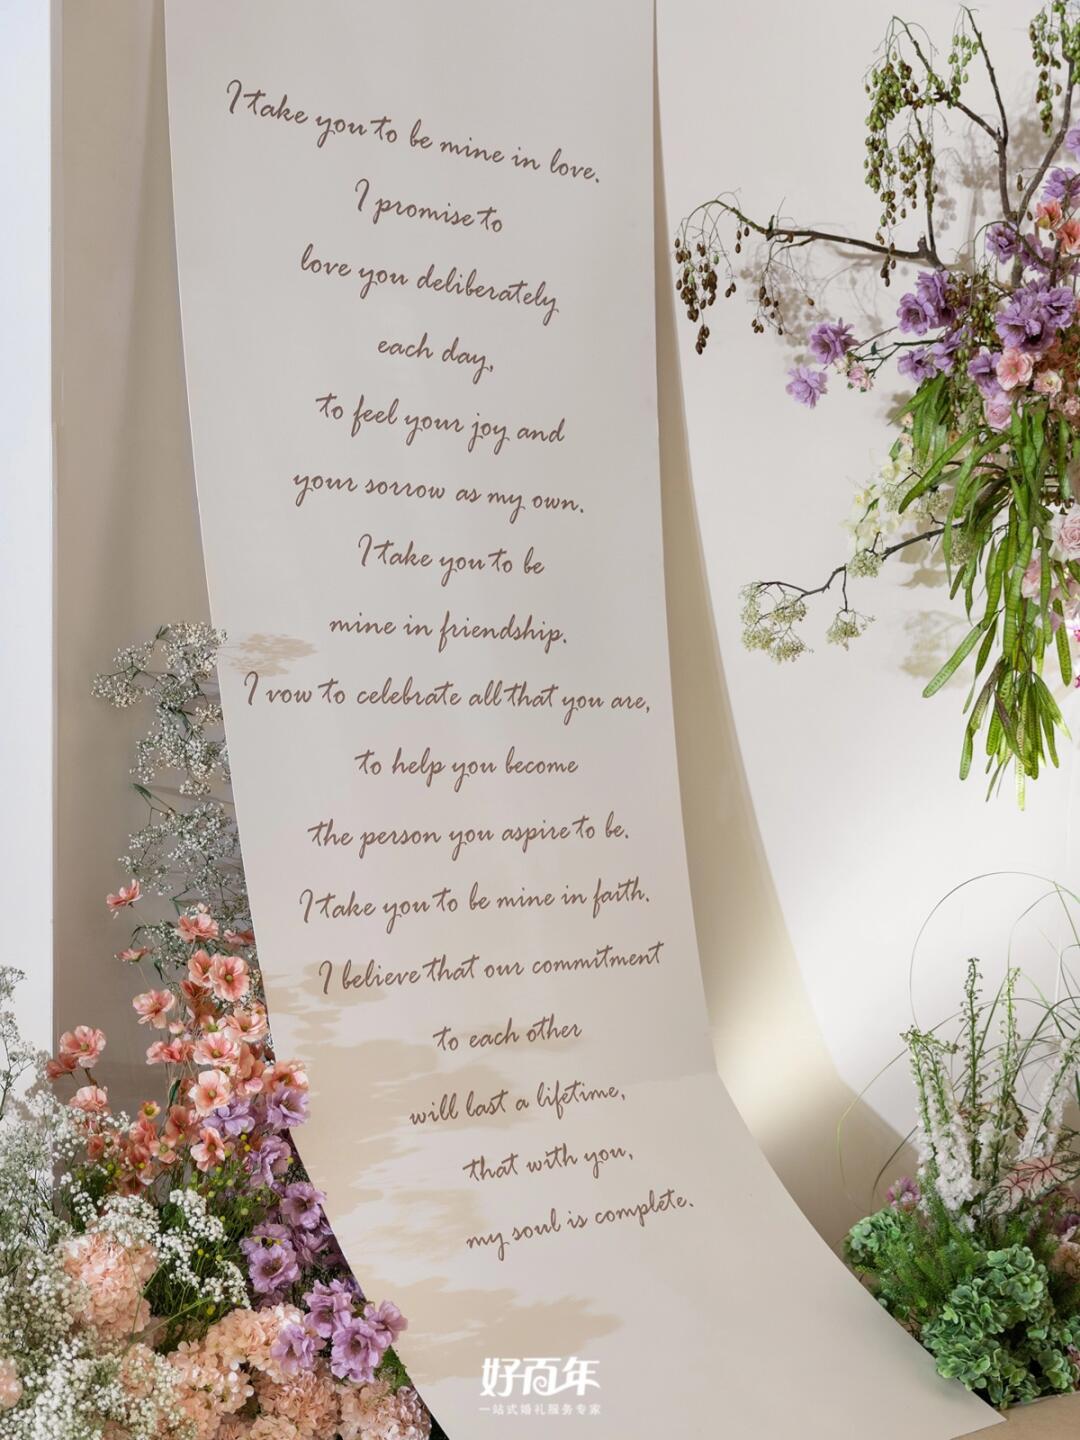 I take you to be mine in love.
I promise to
love you deliberately
each day,
to feel your joy and
your sorrow as my own.
I take you to be
mine in friendship.
I vow to celebrate all that you are,
to help you become
the person you aspire to be.
I take you to be mine in faith.
I believe that our commitment
to each other
will last a lifetime,
that with you,
my soul is complete.
好百年
一站式婚礼服务专家